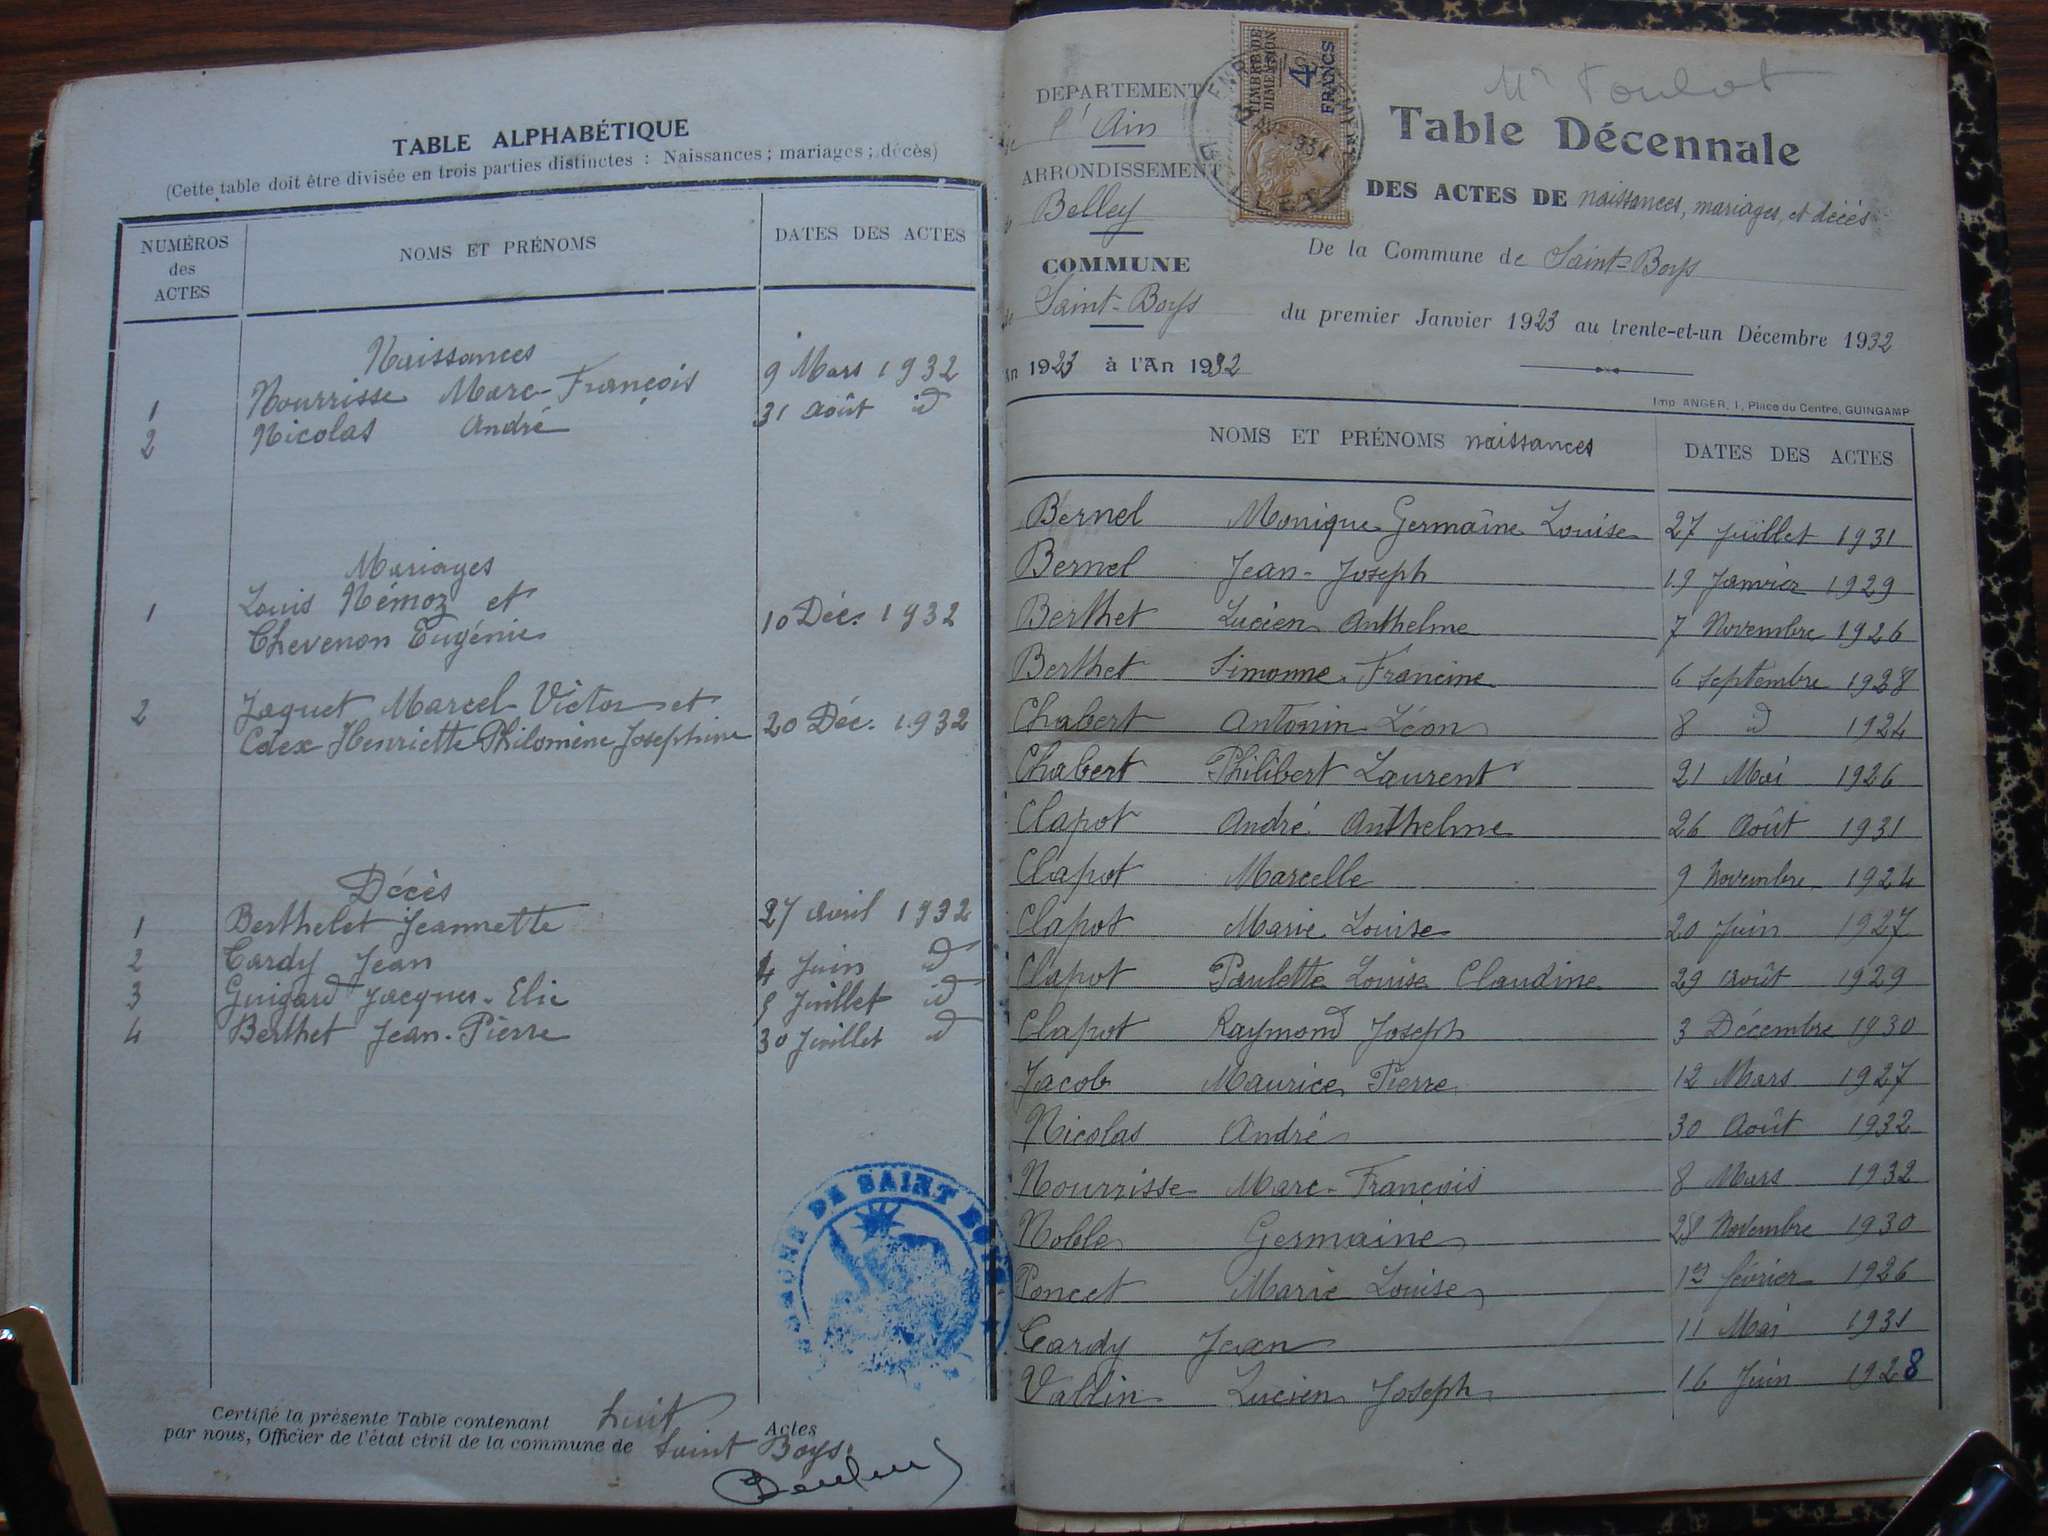 TABLE ALPHABÉTIQUE
(Cette table doit être divisée en trois parties distinctes : Naissances ; mariages ; décès)
NUMÉROS des ACTES NOMS ET PRÉNOMS DATES DES ACTES
Naissances
1 Nourrisse Marc-François 9 Mars 1932
2 Nicolas André 31 Août id
Mariages
1 Louis Némoz et
Chevenon Eugénie 10 Déc. 1932
2 Jaquet Marcel Victor et
Cdex Henriette Philomène Joséphine 20 Déc. 1932
Décès
1 Berthelet Jeannette 27 avril 1932
2 Cardy Jean 4 Juin id
3 Guigard Jacques-Elie 5 Juillet id
4 Berthet Jean-Pierre 30 Juillet id
COMMUNE DE SAINT BOYS
Certifié la présente Table contenant huit Actes
par nous, Officier de l'état civil de la commune de Saint Boys.
Mr Poulot
DEPARTEMENT
de l'Ain
ARRONDISSEMENT
de Belley
COMMUNE
de Saint-Boys
An 1923 à l'An 1932
TIMBRE DE DIMENSION
4 FRANCS
Table Décennale
DES ACTES DE naissances, mariages, et décés
De la Commune de Saint-Boys
du premier Janvier 1923 au trente-et-un Décembre 1932
Imp. ANGER, 1, Place du Centre, GUINGAMP
NOMS ET PRÉNOMS naissances DATES DES ACTES
Bernel Monique Germaine Louise 27 Juillet 1931
Bernel Jean-Joseph 19 Janvier 1929
Berthet Lucien Anthelme 7 Novembre 1926
Berthet Simonne Francine 6 Septembre 1928
Chabert Antonin Léon 8 id 1924
Chabert Philibert Laurent 21 Mai 1926
Clapot André Anthelme 26 Août 1931
Clapot Marcelle 9 Novembre 1924
Clapot Marie Louise 20 Juin 1927
Clapot Paulette Louise Claudine 29 Août 1929
Clapot Raymond Joseph 3 Décembre 1930
Jacob Maurice Pierre 12 Mars 1927
Nicolas André 30 Août 1932
Nourrisse Marc-François 8 Mars 1932
Noble Germaine 28 Novembre 1930
Poncet Marie Louise 1er février 1926
Cardy Jean 11 Mai 1931
Vallin Lucien Joseph 16 Juin 1928